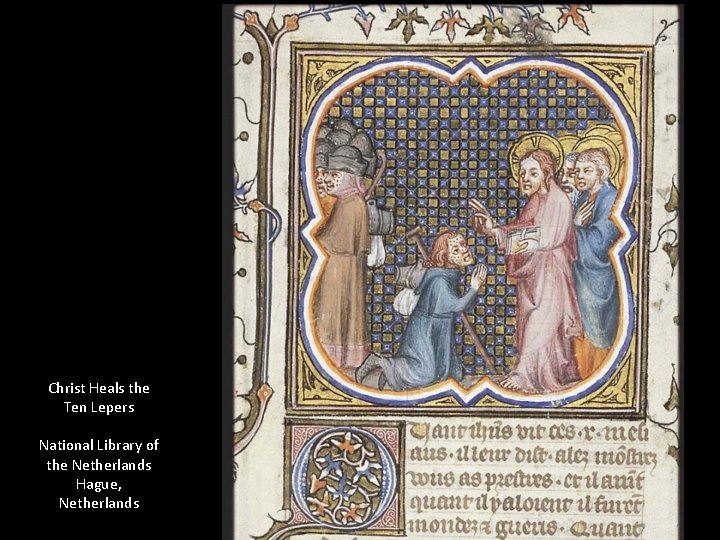 Christ Heals the
Ten Lepers
National Library of
the Netherlands
Hague,
Netherlands
Qant ihūs vit ces .x. mesi
aus . il leur dist . alez mōstrez
vous as prestres . et il auīt
quant il y aloient il furēt
mondez ⁊ gueris . Quant